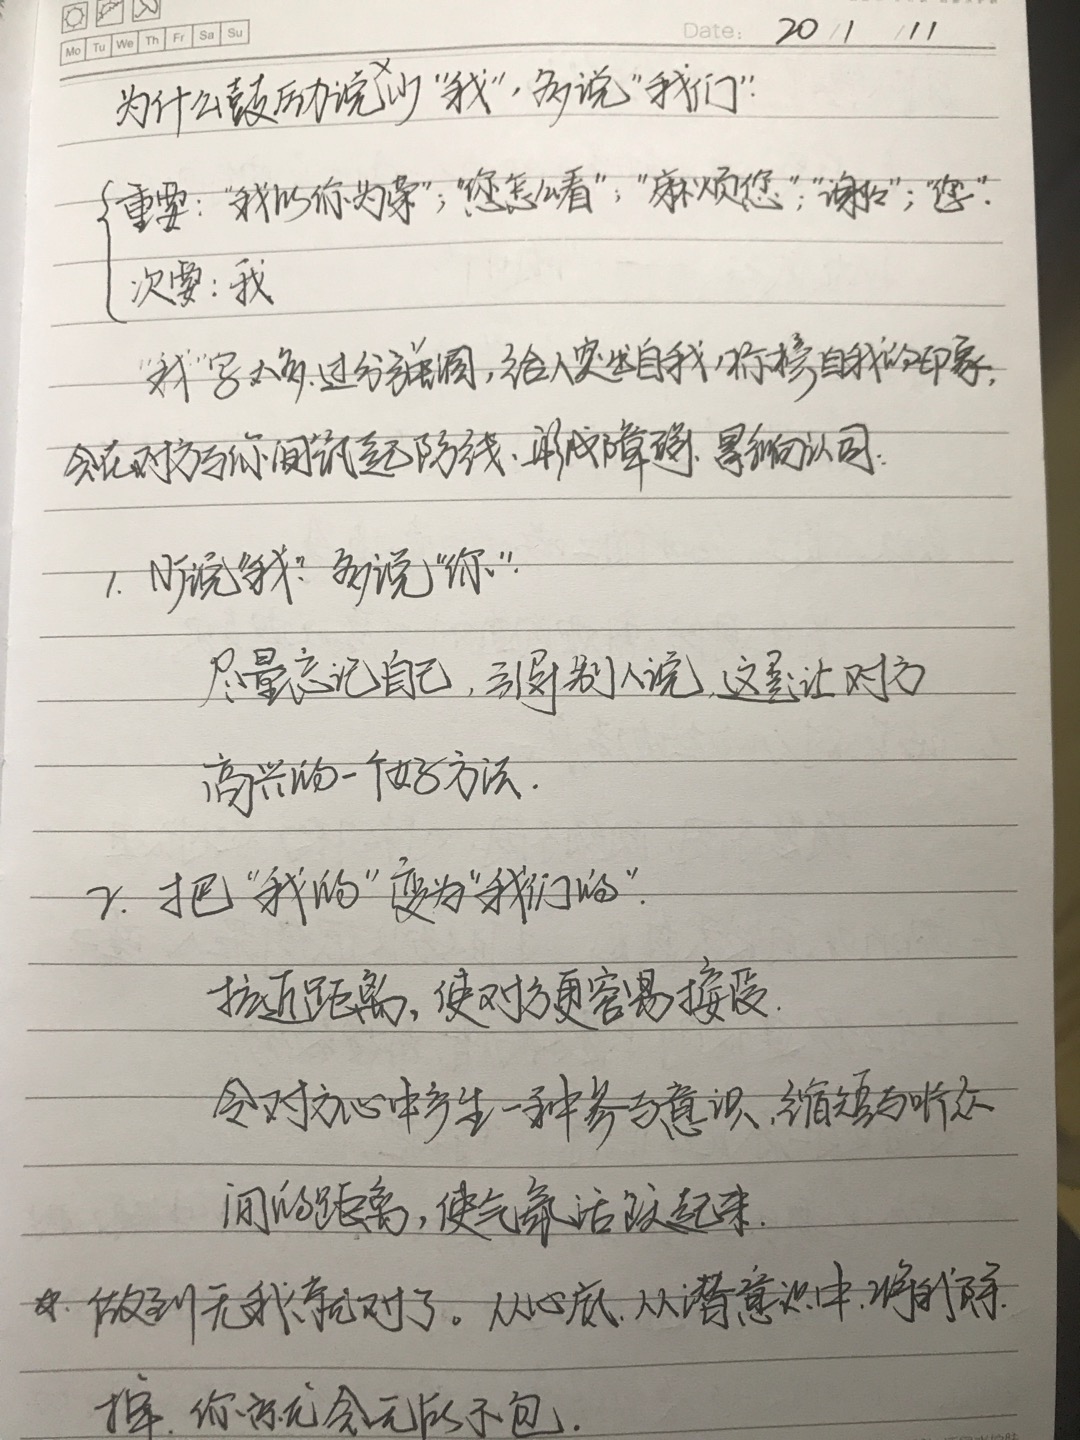 Mo Tu We Th Fr Sa Su
Date: 20/1/11
为什么鼓励说少“我”，多说“我们”：
重要：“我以你为荣”；“您怎么看”；“麻烦您”；“谢谢”；“您”.
次要：我
“我”字太多，过分强调，给人突出自我，标榜自我的印象，
会在对方与你间筑起防线、形成障碍、影响认同：
1. 听说“我”？多说“你”.
尽量忘记自己，引导别人说，这是让对方
高兴的一个好方法.
2. 把“我的”变为“我们的”.
拉近距离，使对方更容易接受.
令对方心中产生一种参与意识，缩短与听众
间的距离，使气氛活跃起来.
☆. 做到无我就对了。从心底、从潜意识中，将我除
掉，你就会无所不包.